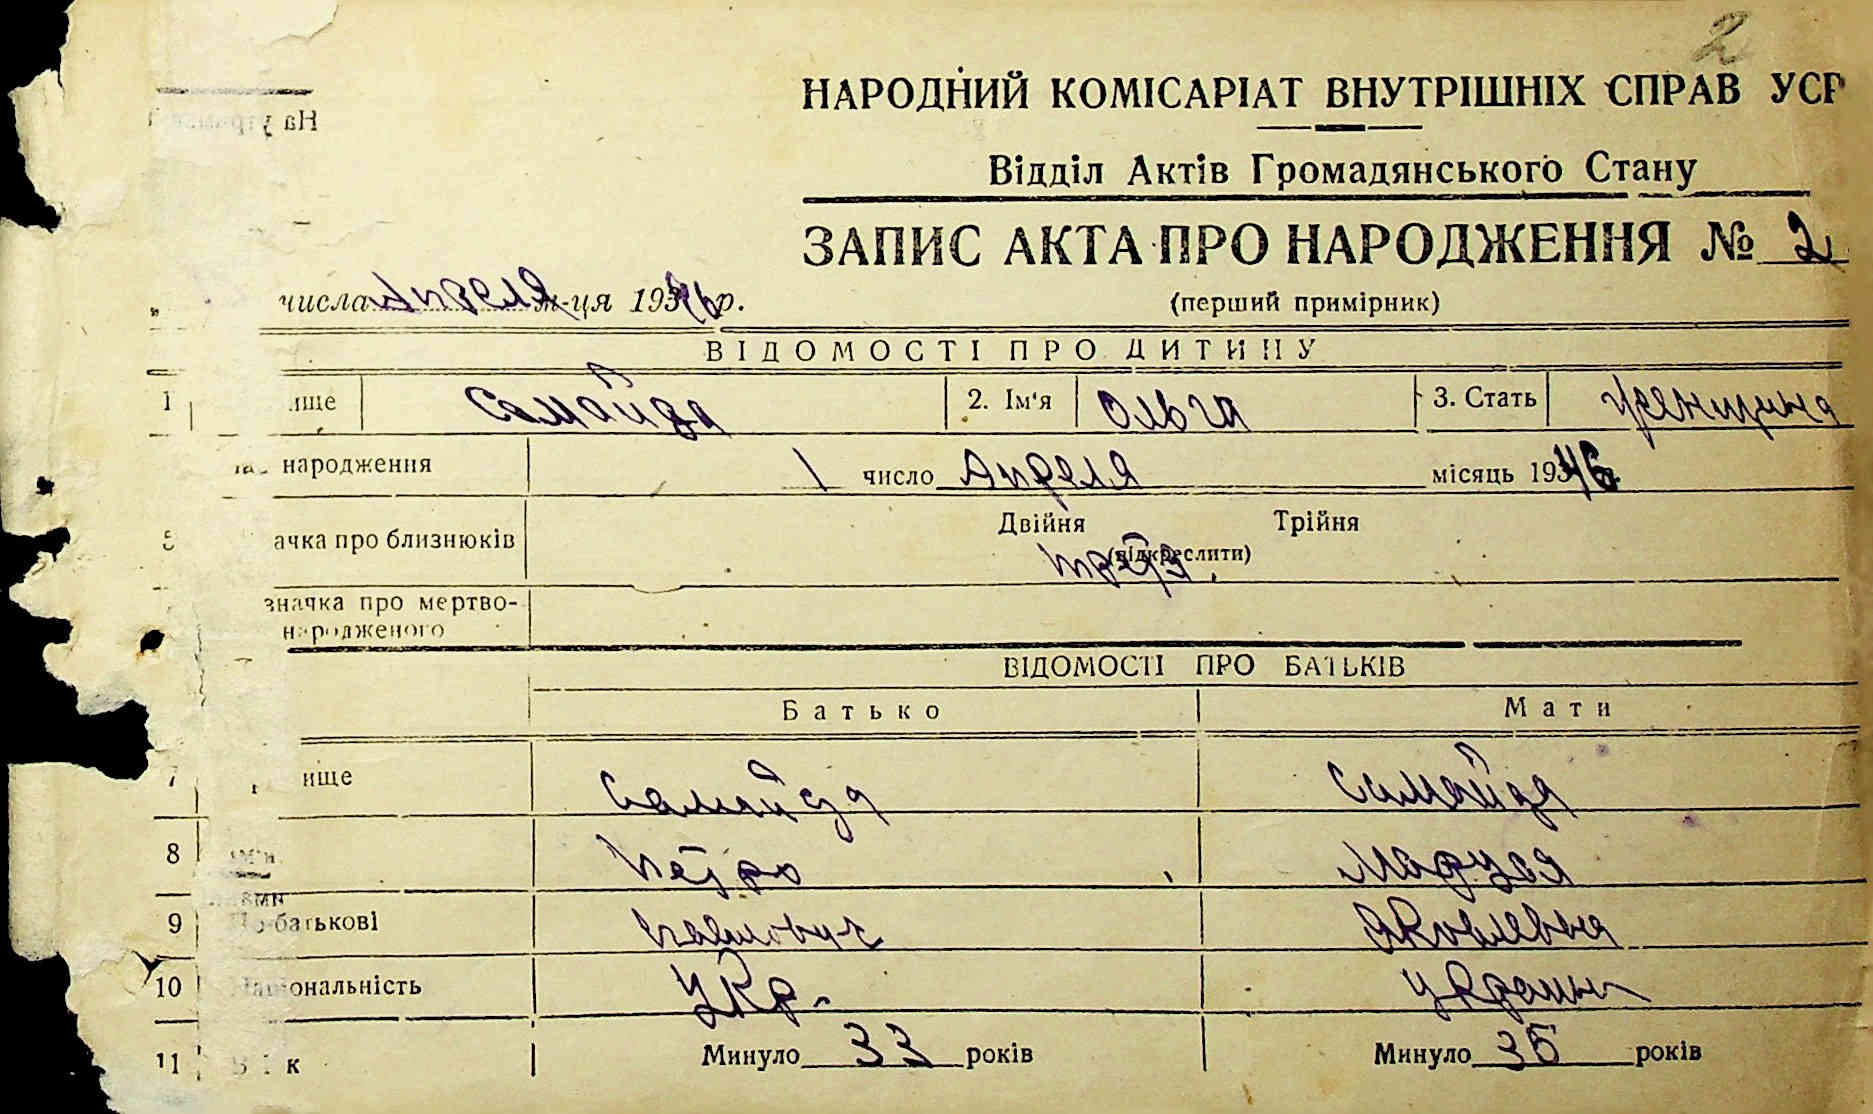 2
НАРОДНИЙ КОМІСАРІАТ ВНУТРІШНІХ СПРАВ УСР
На
Відділ Актів Громадянського Стану
ЗАПИС АКТА ПРО НАРОДЖЕННЯ № 2
числа Апреля м-ця 1946 р.
(перший примірник)
ВІДОМОСТІ ПРО ДИТИНУ
1 ище Самайда 2. Ім'я Ольга 3. Стать женщина
народження 1 число Апреля місяць 1946
5 ачка про близнюків Двійня Трійня
(підкреслити)
значка про мертво-
народженого
ВІДОМОСТІ ПРО БАТЬКІВ
Батько Мати
7 ище Самайда Самайда
8 Петро Маруся
9 По-батькові Яковлевна
10 Національність Укр.
11 Вік Минуло 33 років Минуло 35 років